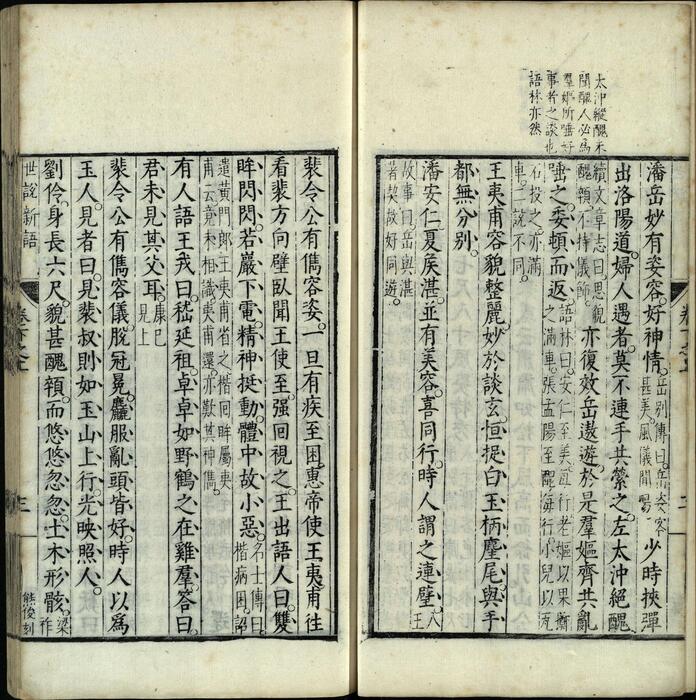 太沖縱醜不
聞醜人必為
羣嫗所唾好
事者之談也
語林亦然
潘岳妙有姿容。好神情。岳別傳曰。岳姿容甚美。風儀閒暢。少時挾彈
出洛陽道。婦人遇者。莫不連手共縈之。左太沖絕醜。
續文章志曰思貌醜顇不持儀飾。亦復效岳遨遊。於是羣嫗齊共亂
唾之。委頓而返。語林曰。安仁至美。每行。老嫗以果擲之滿車。張孟陽至醜。每行。小兒以瓦
石投之。亦滿車。二說不同。
王夷甫容貌整麗。妙於談玄。恒捉白玉柄麈尾。與手
都無分別。
潘安仁。夏侯湛。並有美容。喜同行。時人謂之連璧。八王
故事曰。岳與湛著契。故好同遊。
裴令公有儁容姿。一旦有疾至困。惠帝使王夷甫往
看。裴方向壁臥。聞王使至。强回視之。王出語人曰。雙
眸閃閃。若巖下電。精神挺動。體中故小惡。名士傳曰。楷病困。詔
遣黃門郎王夷甫省之。楷回眸屬夷甫云。竟未相識。夷甫還。亦歎其神儁。
有人語王戎曰。嵇延祖卓卓如野鶴之在雞羣。答曰。
君未見其父耳。康已見上
裴令公有儁容儀。脫冠冕。麤服亂頭皆好。時人以為
玉人。見者曰。見裴叔則如玉山上行。光映照人。
劉伶。身長六尺。貌甚醜顇。而悠悠忽忽。土木形骸。梁祚
世說新語